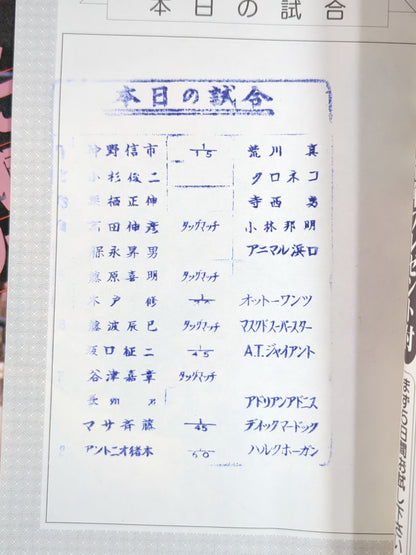 本日の試合
本日の試合
中野信市 1/15 荒川真
小杉俊二 クロネコ
栗栖正伸 寺西勇
高田伸彦 タッグマッチ 小林邦明
保永昇男 アニマル浜口
藤原喜明 タッグマッチ
木戸修 オットーワンツ
藤波辰巳 タッグマッチ マスクドスーパースター
坂口征二 1/45 A.T.ジャイアント
谷津嘉章 タッグマッチ
長州力 アドリアンアドニス
マサ斉藤 1/45 ディックマードック
アントニオ猪木 1/60 ハルクホーガン